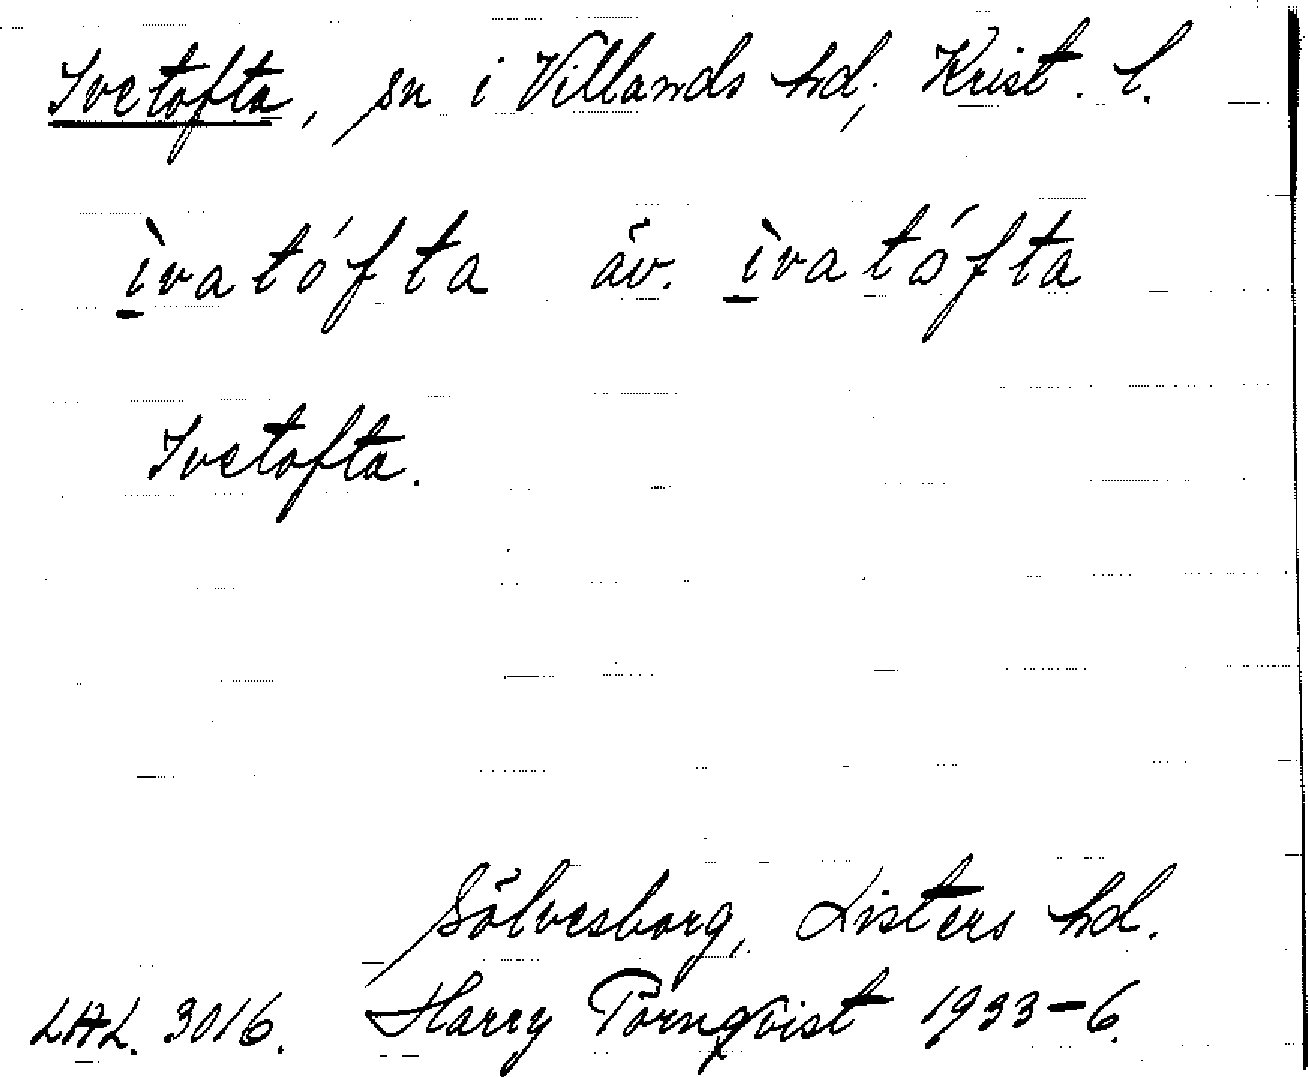 Ivetofta, sn i Villands hd, Krist. l.
ìvatófta äv. ìvatófta
Ivetofta.
Sölvesborg, Listers hd.
LAL. 3016. Harry Törnqvist 1933-6.